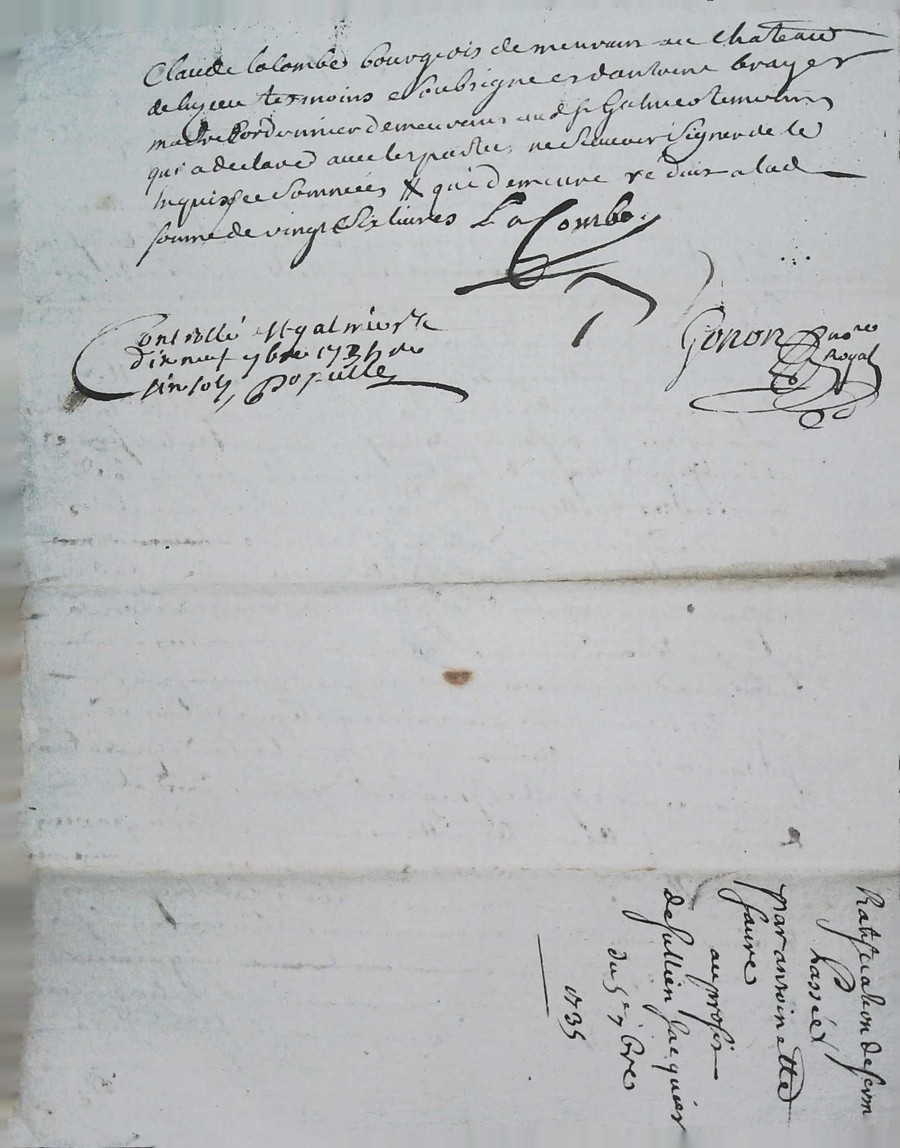 Claude lacombe bourgeois demeurant au chateau
de tesmoins soubsigne et dantoine brayer
maitre Cordonnier demeurant aud st Galmier temoins
qui a declare avec les parties ne scavoir signer de ce
Enquis et sommées # qui demeure reduit a lad
somme de vingt six livres LaCombe
Gonon nore
Royal
Controllé a st galmier le
dix neuf 9bre 173 Re
cinq sols
Ratification de
passée
par antoinette
faure
au profit
de jullien Jacquier
du 9bre
1735